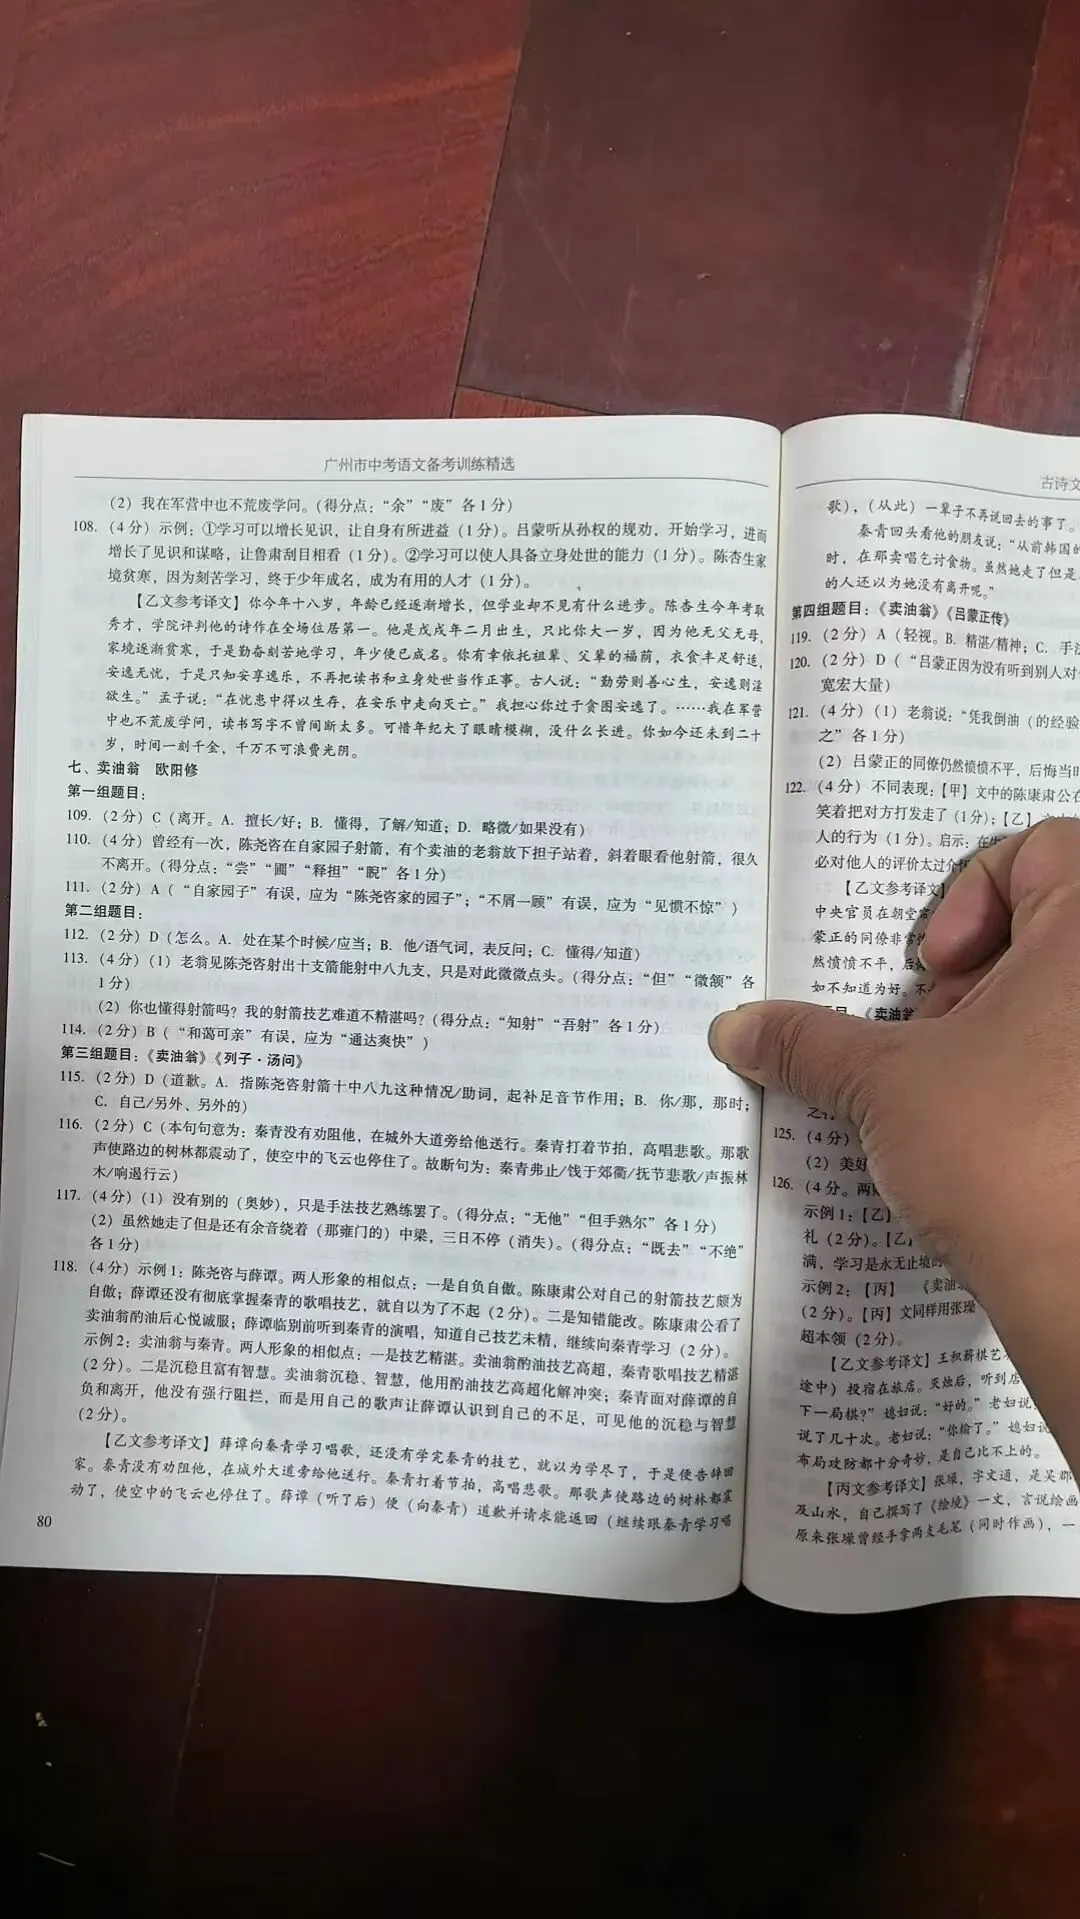 广州市中考语文备考训练精选
(2) 我在军营中也不荒废学问。(得分点:“余”“废” 各1分)
108. (4分) 示例:①学习可以增长见识,让自身有所进益(1分)。吕蒙听从孙权的规劝,开始学习,进而
增长了见识和谋略,让鲁肃刮目相看(1分)。②学习可以使人具备立身处世的能力(1分)。陈杏生家
境贫寒,因为刻苦学习,终于少年成名,成为有用的人才(1分)。
【乙文参考译文】你今年十八岁,年龄已经逐渐增长,但学业却不见有什么进步。陈杏生今年考取
秀才,学院评判他的诗作在全场位居第一。他是戊戌年二月出生,只比你大一岁,因为他无父无母,
家境逐渐贫寒,于是勤奋刻苦地学习,年少便已成名。你有幸依托祖辈、父辈的福荫,衣食丰足舒适,
安逸无忧,于是只知安享逸乐,不再把读书和立身处世当作正事。古人说:“勤劳则善心生,安逸则淫
欲生。”孟子说:“在忧患中得以生存,在安乐中走向灭亡。”我担心你过于贪图安逸了。……我在军营
中也不荒废学问,读书写字不曾间断太多。可惜年纪大了眼睛模糊,没什么长进。你如今还未到二十
岁,时间一刻千金,千万不可浪费光阴。
七、卖油翁 欧阳修
第一组题目:
109. (2分) C (离开。A. 擅长/好;B. 懂得,了解/知道;D. 略微/如果没有)
110. (4分) 曾经有一次,陈尧咨在自家园子射箭,有个卖油的老翁放下担子站着,斜着眼看他射箭,很久
不离开。(得分点:“尝”“圃”“释担”“睨”各1分)
111. (2分) A (“自家园子”有误,应为“陈尧咨家的园子”;“不屑一顾”有误,应为“见惯不惊”)
第二组题目:
112. (2分) D (怎么。A. 处在某个时候/应当;B. 他/语气词,表反问;C. 懂得/知道)
113. (4分) (1) 老翁见陈尧咨射出十支箭能射中八九支,只是对此微微点头。(得分点:“但”“微颔”各
1分)
(2) 你也懂得射箭吗?我的射箭技艺难道不精湛吗?(得分点:“知射”“吾射”各1分)
114. (2分) B (“和蔼可亲”有误,应为“通达爽快”)
第三组题目:《卖油翁》《列子·汤问》
115. (2分) D (道歉。A. 指陈尧咨射箭十中八九这种情况/助词,起补足音节作用;B. 你/那,那时;
C. 自己/另外、另外的)
116. (2分) C (本句句意为:秦青没有劝阻他,在城外大道旁给他送行。秦青打着节拍,高唱悲歌。那歌
声使路边的树林都震动了,使空中的飞云也停住了。故断句为:秦青弗止/饯于郊衢/抚节悲歌/声振林
木/响遏行云)
117. (4分) (1) 没有别的(奥妙),只是手法技艺熟练罢了。(得分点:“无他”“但手熟尔”各1分)
(2) 虽然她走了但是还有余音绕着(那雍门的)中梁,三日不停(消失)。(得分点:“既去”“不绝”
各1分)
118. (4分) 示例1:陈尧咨与薛谭。两人形象的相似点:一是自负自傲。陈康肃公对自己的射箭技艺颇为
自傲;薛谭还没有彻底掌握秦青的歌唱技艺,就自以为了不起(2分)。二是知错能改。陈康肃公看了
卖油翁酌油后心悦诚服;薛谭临别前听到秦青的演唱,知道自己技艺未精,继续向秦青学习(2分)。
示例2:卖油翁与秦青。两人形象的相似点:一是技艺精湛。卖油翁酌油技艺高超,秦青歌唱技艺精湛
(2分)。二是沉稳且富有智慧。卖油翁沉稳、智慧,他用酌油技艺高超化解冲突;秦青面对薛谭的自
负和离开,他没有强行阻拦,而是用自己的歌声让薛谭认识到自己的不足,可见他的沉稳与智慧
(2分)。
【乙文参考译文】薛谭向秦青学习唱歌,还没有学完秦青的技艺,就以为学尽了,于是便告辞回
家。秦青没有劝阻他,在城外大道旁给他送行。秦青打着节拍,高唱悲歌。那歌声使路边的树林都震
动了,使空中的飞云也停住了。薛谭(听了后)便(向秦青)道歉并请求能返回(继续跟秦青学习唱
80
古诗文
歌),(从此)一辈子不再说回去的事了。
秦青回头看他的朋友说:“从前韩国的
时,在那卖唱乞讨食物。虽然她走了但是
的人还以为她没有离开呢。”
第四组题目:《卖油翁》《吕蒙正传》
119. (2分) A (轻视。B. 精湛/精神;C. 手法
120. (2分) D (“吕蒙正因为没有听到别人对
宽宏大量)
121. (4分) (1) 老翁说:“凭我倒油(的经验
之”各1分)
(2) 吕蒙正的同僚仍然愤愤不平,后悔当时
122. (4分) 不同表现:【甲】文中的陈康肃公在
笑着把对方打发走了(1分);【乙】
人的行为(1分)。启示:在生
必对他人的评价太过介怀
【乙文参考译文】
中央官员在朝堂
蒙正的同僚非常
然愤愤不平,后
如不知道为好。不
题目:《卖油翁
125. (4分)
(2) 美好
126. (4分。两
示例1:【乙】
礼(2分)。【乙】
满,学习是永无止境的
示例2:【丙】 《卖油
(2分)。【丙】文同样用张璪
超本领(2分)。
【乙文参考译文】王积薪棋艺
途中)投宿在旅店。灭烛后,听到店
下一局棋?”媳妇说:“好的。”老妇说
说了几十次。老妇说:“你输了。”媳妇说
布局攻防都十分奇妙,是自己比不上的。
【丙文参考译文】张璪,字文通,是吴郡
及山水,自己撰写了《绘境》一文,言说绘画
原来张璪曾经手拿两支毛笔(同时作画),一